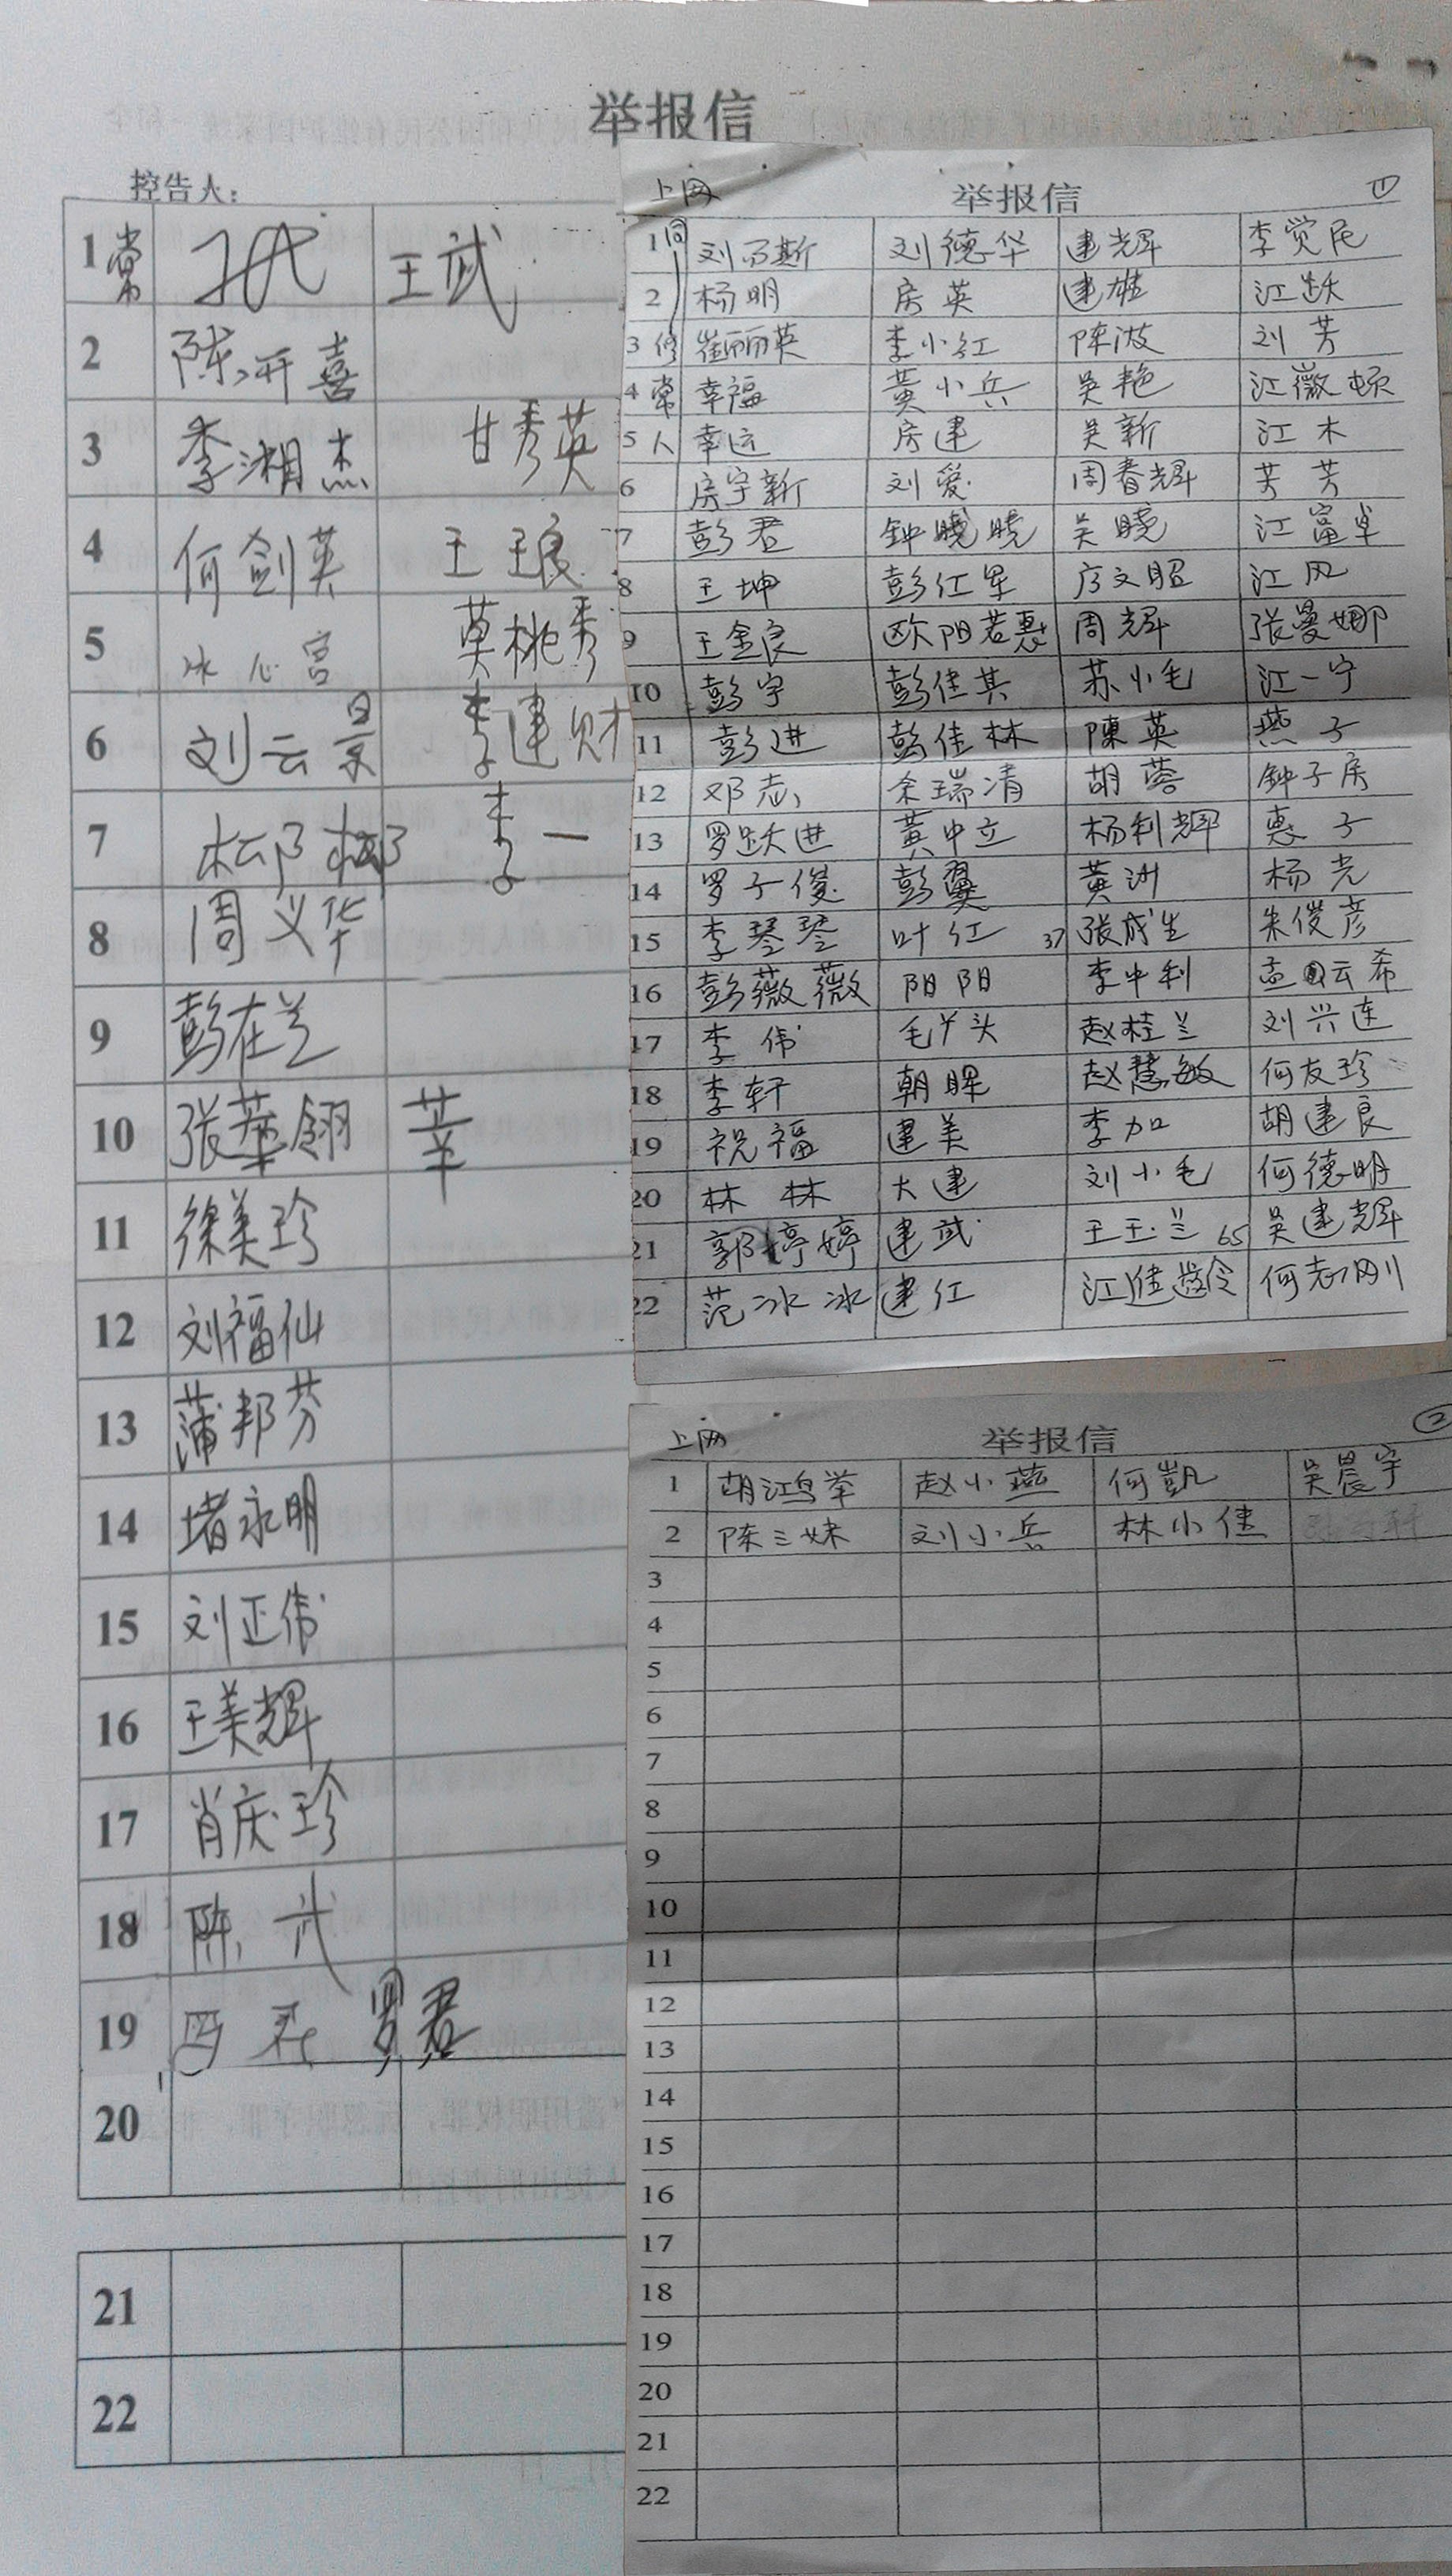 举报信
控告人：
1 常 王武
2 陈开喜
3 李湘杰 甘秀英
4 何剑英 王琅
5 冰心宫 莫桃秀
6 刘云景 李建财
7 李一
8 周义华
9 彭在兰
10 张莘翎 莘
11 徐美珍
12 刘福仙
13 蒲邦芬
14 堵永明
15 刘正伟
16 王美辉
17 肖庆珍
18 陈武
19 罗君
20
21
22
上网 举报信 ①
1 同 刘万斯 刘德华 建辉 李觉民
2 杨明 房英 建雄 江跃
3 修 崔丽英 李小红 陈波 刘芳
4 常 幸福 黄小兵 吴艳 江薇顿
5 人 幸运 房建 吴新 江木
6 房宇新 刘爱 周春辉 芳芳
7 彭君 钟晓晓 吴晓 江富卓
8 王坤 彭红军 房文昭 江风
9 王金良 欧阳若惠 周辉 张曼娜
10 彭宇 彭佳其 苏小毛 江一宁
11 彭进 彭佳林 陳英 燕子
12 邓志 余瑞清 胡蓉 钟子房
13 罗跃进 黄中立 杨利辉 惠子
14 罗子俊 彭翼 黄洲 杨光
15 李琴琴 叶红 37 張成生 朱俊彦
16 彭薇薇 阳阳 李中利 孟云希
17 李伟 毛丫头 赵桂兰 刘兴连
18 李轩 朝晖 赵慧敏 何友珍
19 祝福 建美 李加 胡建良
20 林林 大建 刘小毛 何德明
21 郭婷婷 建武 王玉兰 65 吴建辉
22 范冰冰 建红 江佳龄 何志刚
上网 举报信 ②
1 胡鸿举 赵小燕 何凯 吴晨宇
2 陈三妹 刘小兵 林小佳
3
4
5
6
7
8
9
10
11
12
13
14
15
16
17
18
19
20
21
22